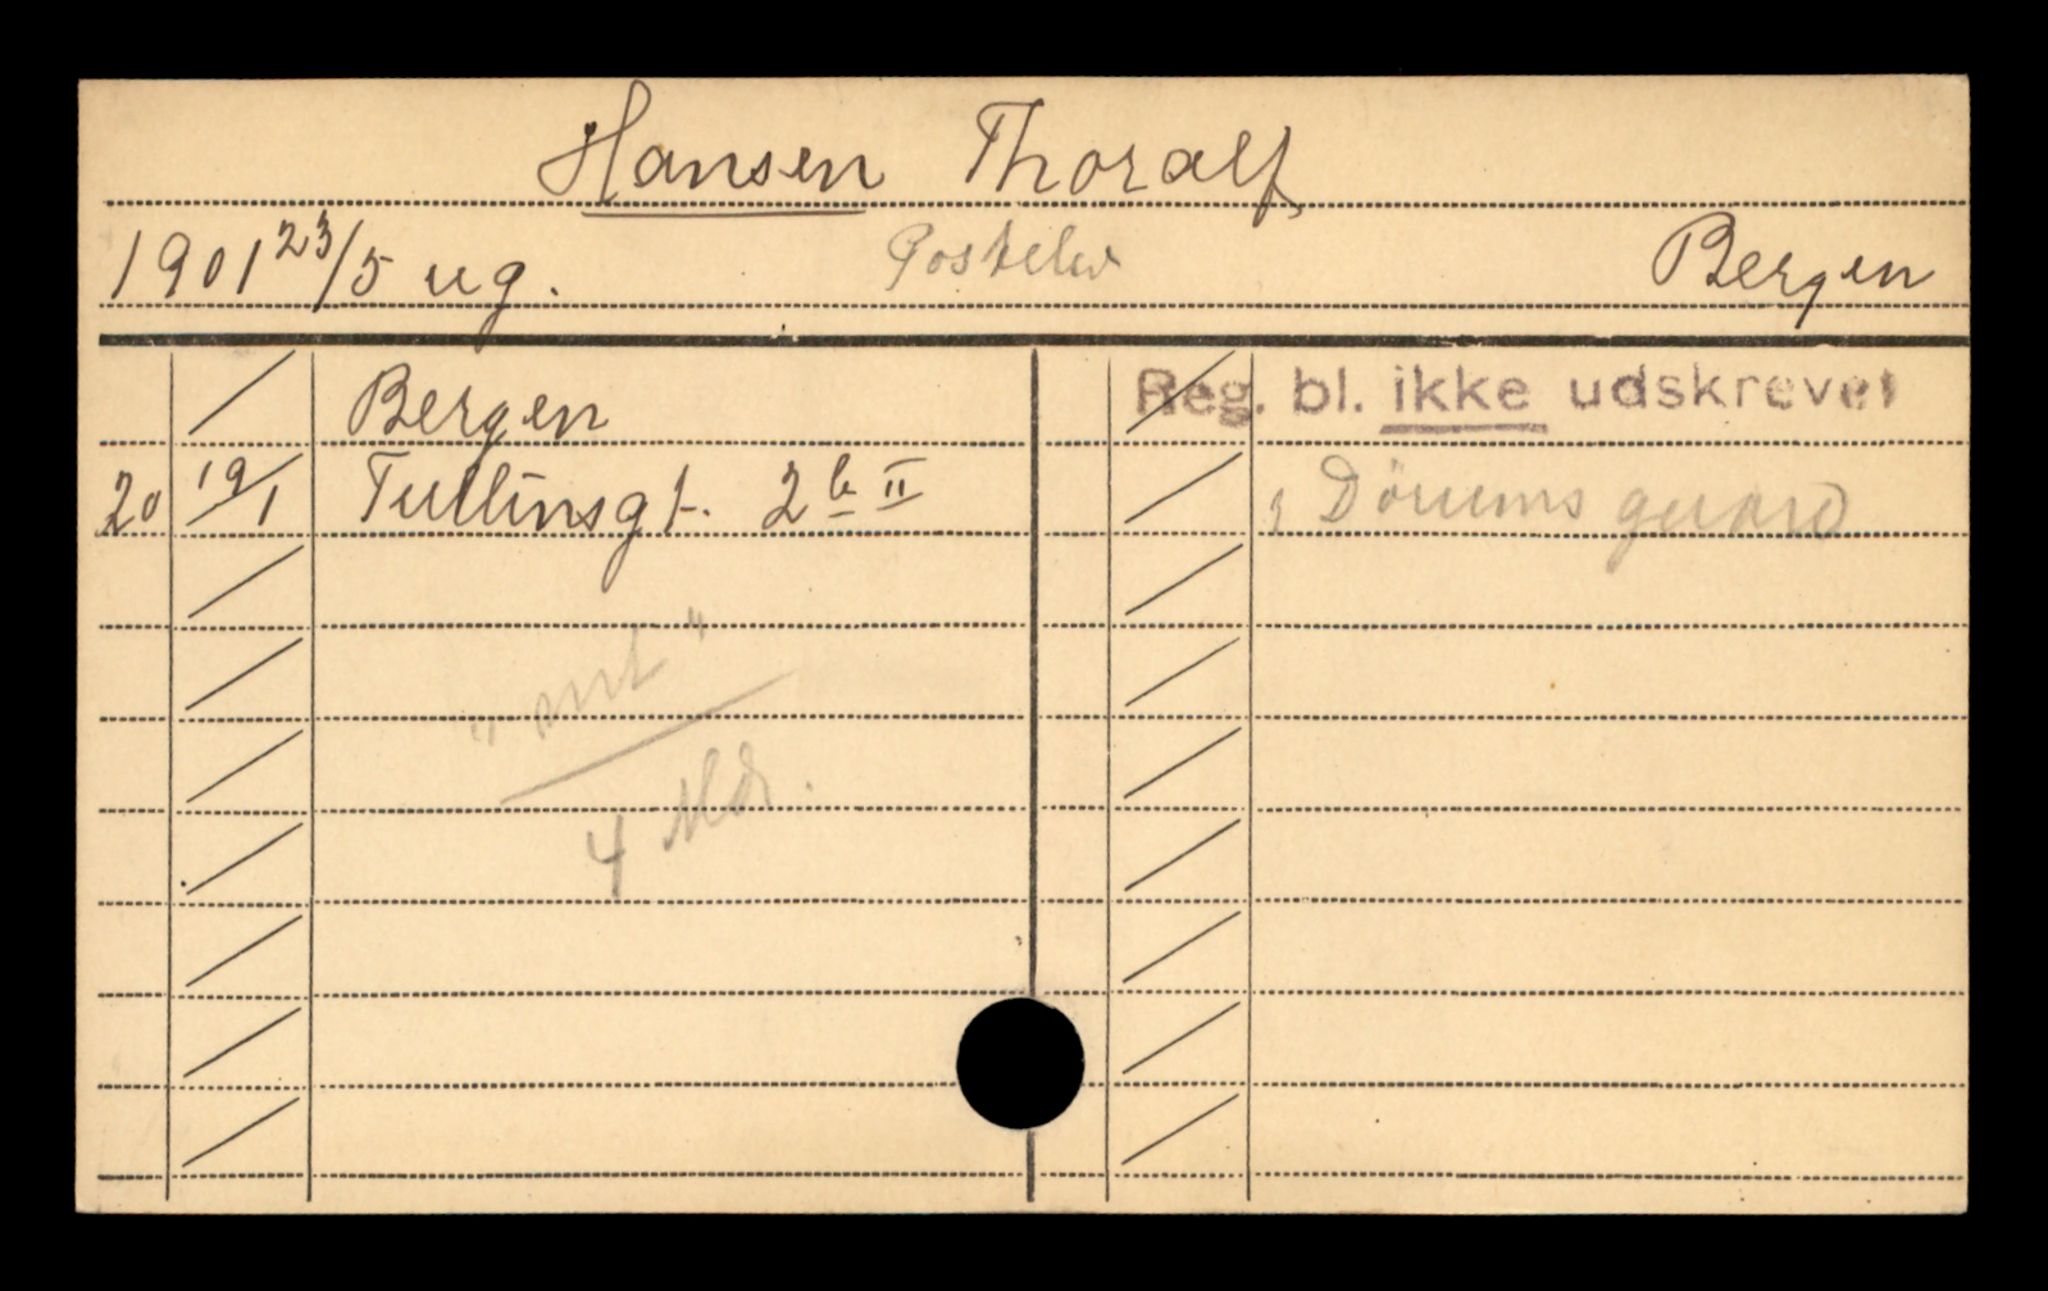 Hansen Thoralf
1901 23/5 ug. Postelev Bergen
Bergen
20 19/1 Tullinsgt. 2b II
4 Md.
Reg. bl. ikke udskrevet